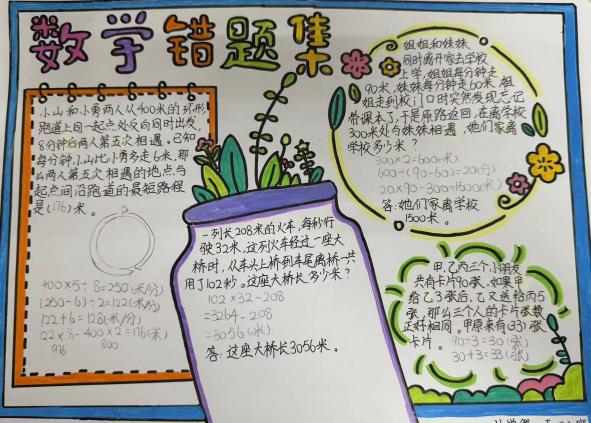 数学错题集
小山和小勇两人从400米的环形
跑道上同一起点处反向同时出发,
8分钟后两人第五次相遇。已知
每分钟,小山比小勇多走6米,那
么两人第五次相遇的地点与
起点间沿跑道的最短路程
是(176)米。
400×5÷8=250(米/分)
(250-6)÷2=122(米/分)
122+6=128(米/分)
122×8-400×2=176(米)
976 800
一列长208米的火车,每秒行
驶32米,这列火车经过一座大
桥时,从车头上桥到车尾离桥一共
用了102秒。这座大桥长多少米?
102×32-208
=3264-208
=3056(米)
答:这座大桥长3056米。
姐姐和妹妹
同时离开家去学校
上学,姐姐每分钟走
90米,妹妹每分钟走60米。姐
姐走到校门口时突然发现忘记
带课本了,于是原路返回,在离学校
300米处与妹妹相遇。她们家离
学校多少米?
300×2=600(米)
600÷(90-60)=20(分)
20×90-300=1500(米)
答:她们家离学校
1500米。
甲、乙、丙三个小朋友
共有卡片90张,如果甲
给乙3张后,乙又送给丙5
张,那么三个人的卡片张数
正好相同。甲原来有(33)张
卡片。 90÷3=30(张)
30+3=33(张)